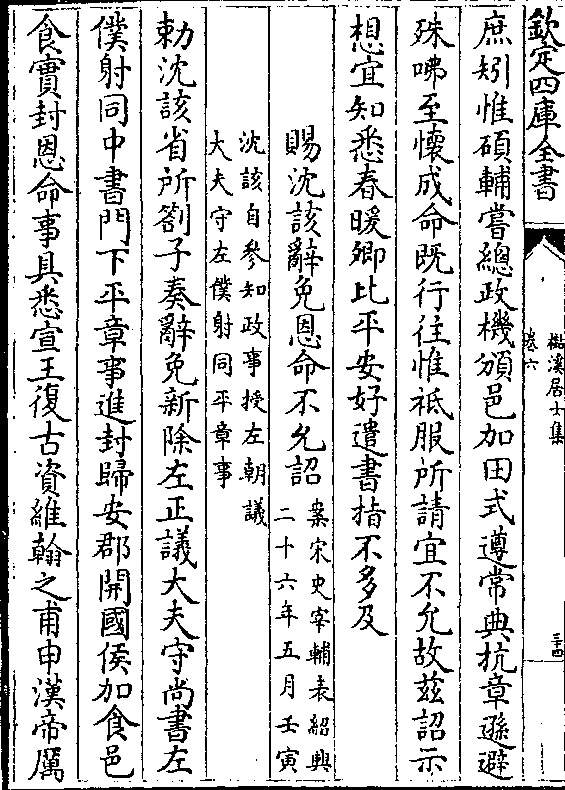 欽定四庫全書
樕溪居士集
卷六
三十四
庶矧惟碩輔嘗總政機頒邑加田式遵常典抗章遜避
殊咈至懷成命既行往惟祗服所請宜不允故茲詔示
想宜知悉春暖卿比平安好遣書指不多及
賜沈該辭免恩命不允詔
案宋史宰輔表紹興
二十六年五月壬寅
沈該自參知政事授左朝議
大夫守左僕射同平章事
勅沈該省所劄子奏辭免新除左正議大夫守尚書左
僕射同中書門下平章事進封歸安郡開國侯加食邑
食實封恩命事具悉宣王復古資維翰之甫申漢帝厲